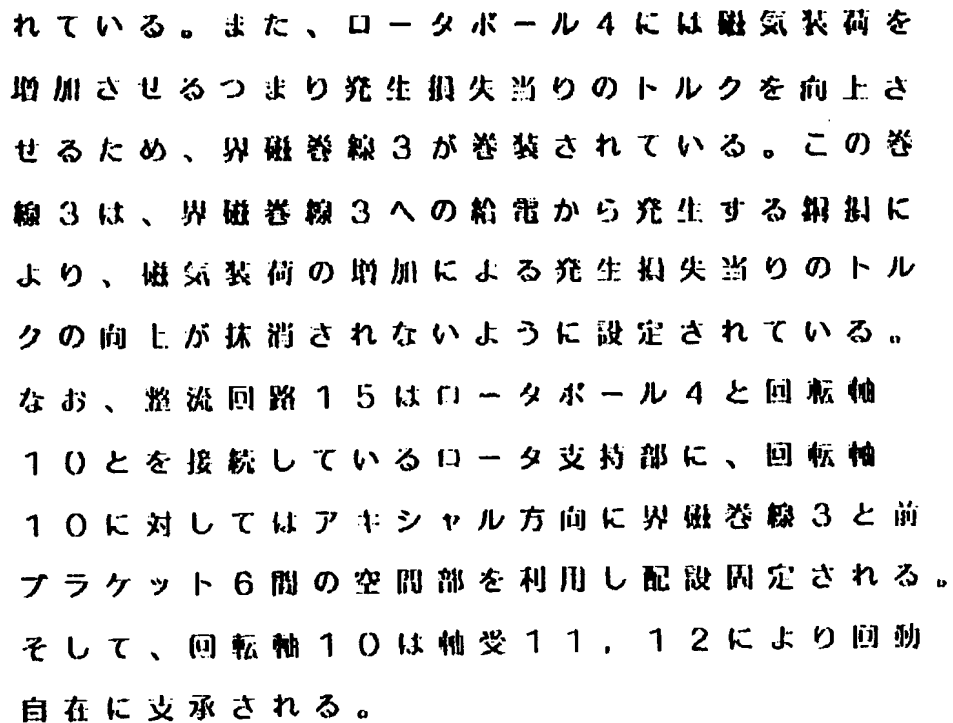 れている。また、ロータポール4には磁気装荷を
増加させるつまり発生損失当りのトルクを向上さ
せるため、界磁巻線3が巻装されている。この巻
線3は、界磁巻線3への給電から発生する銅損に
より、磁気装荷の増加による発生損失当りのトル
クの向上が抹消されないように設定されている。
なお、整流回路15はロータポール4と回転軸
10とを接続しているロータ支持部に、回転軸
10に対してはアキシャル方向に界磁巻線3と前
ブラケット6間の空間部を利用し配設固定される。
そして、回転軸10は軸受11,12により回動
自在に支承される。